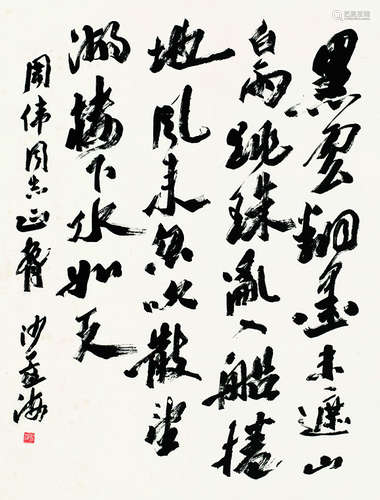 黑雲翻墨未遮山
白雨跳珠亂入船捲
地風来忽吹散望
湖樓下水如天
周伟同志正 沙孟海